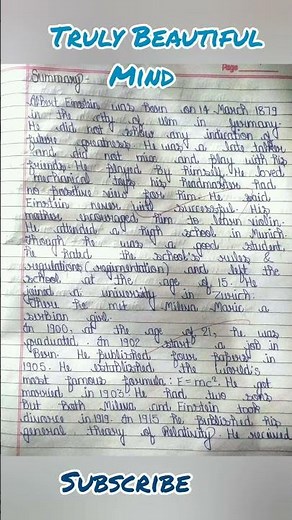 TRULY BEAUTIFUL
MIND
Page
Summary-
Albert Einstein was born on 14 March 1879
in the city of Ulm in Germany.
He did not show any indication of
future greatness. He was a late talker
and did not mix and play with his
friends. He played by himself. He loved
mechanical toys. his headmaster had
no positive view for him. He said
Einstein never will successful. His
mother encouraged him to learn violin.
He attended a high school in Munich
though he was a good student.
he hated the school's rules &
regulations (regimentation) and left the
school at the age of 15. He
joined a university in Zurich.
There he met Mileva Maric a
serbian girl.
In 1900. at the age of 21, he was
graduated. In 1902 start a job in
Bern. He published four papers in
1905. He established the world's
most famous formula: E=mc². He got
married in 1903. He had two sons
But Both Mileva and Einstein took
divorce in 1919. In 1915 he published his
general theory of Relativity. He received
SUBSCRIBE